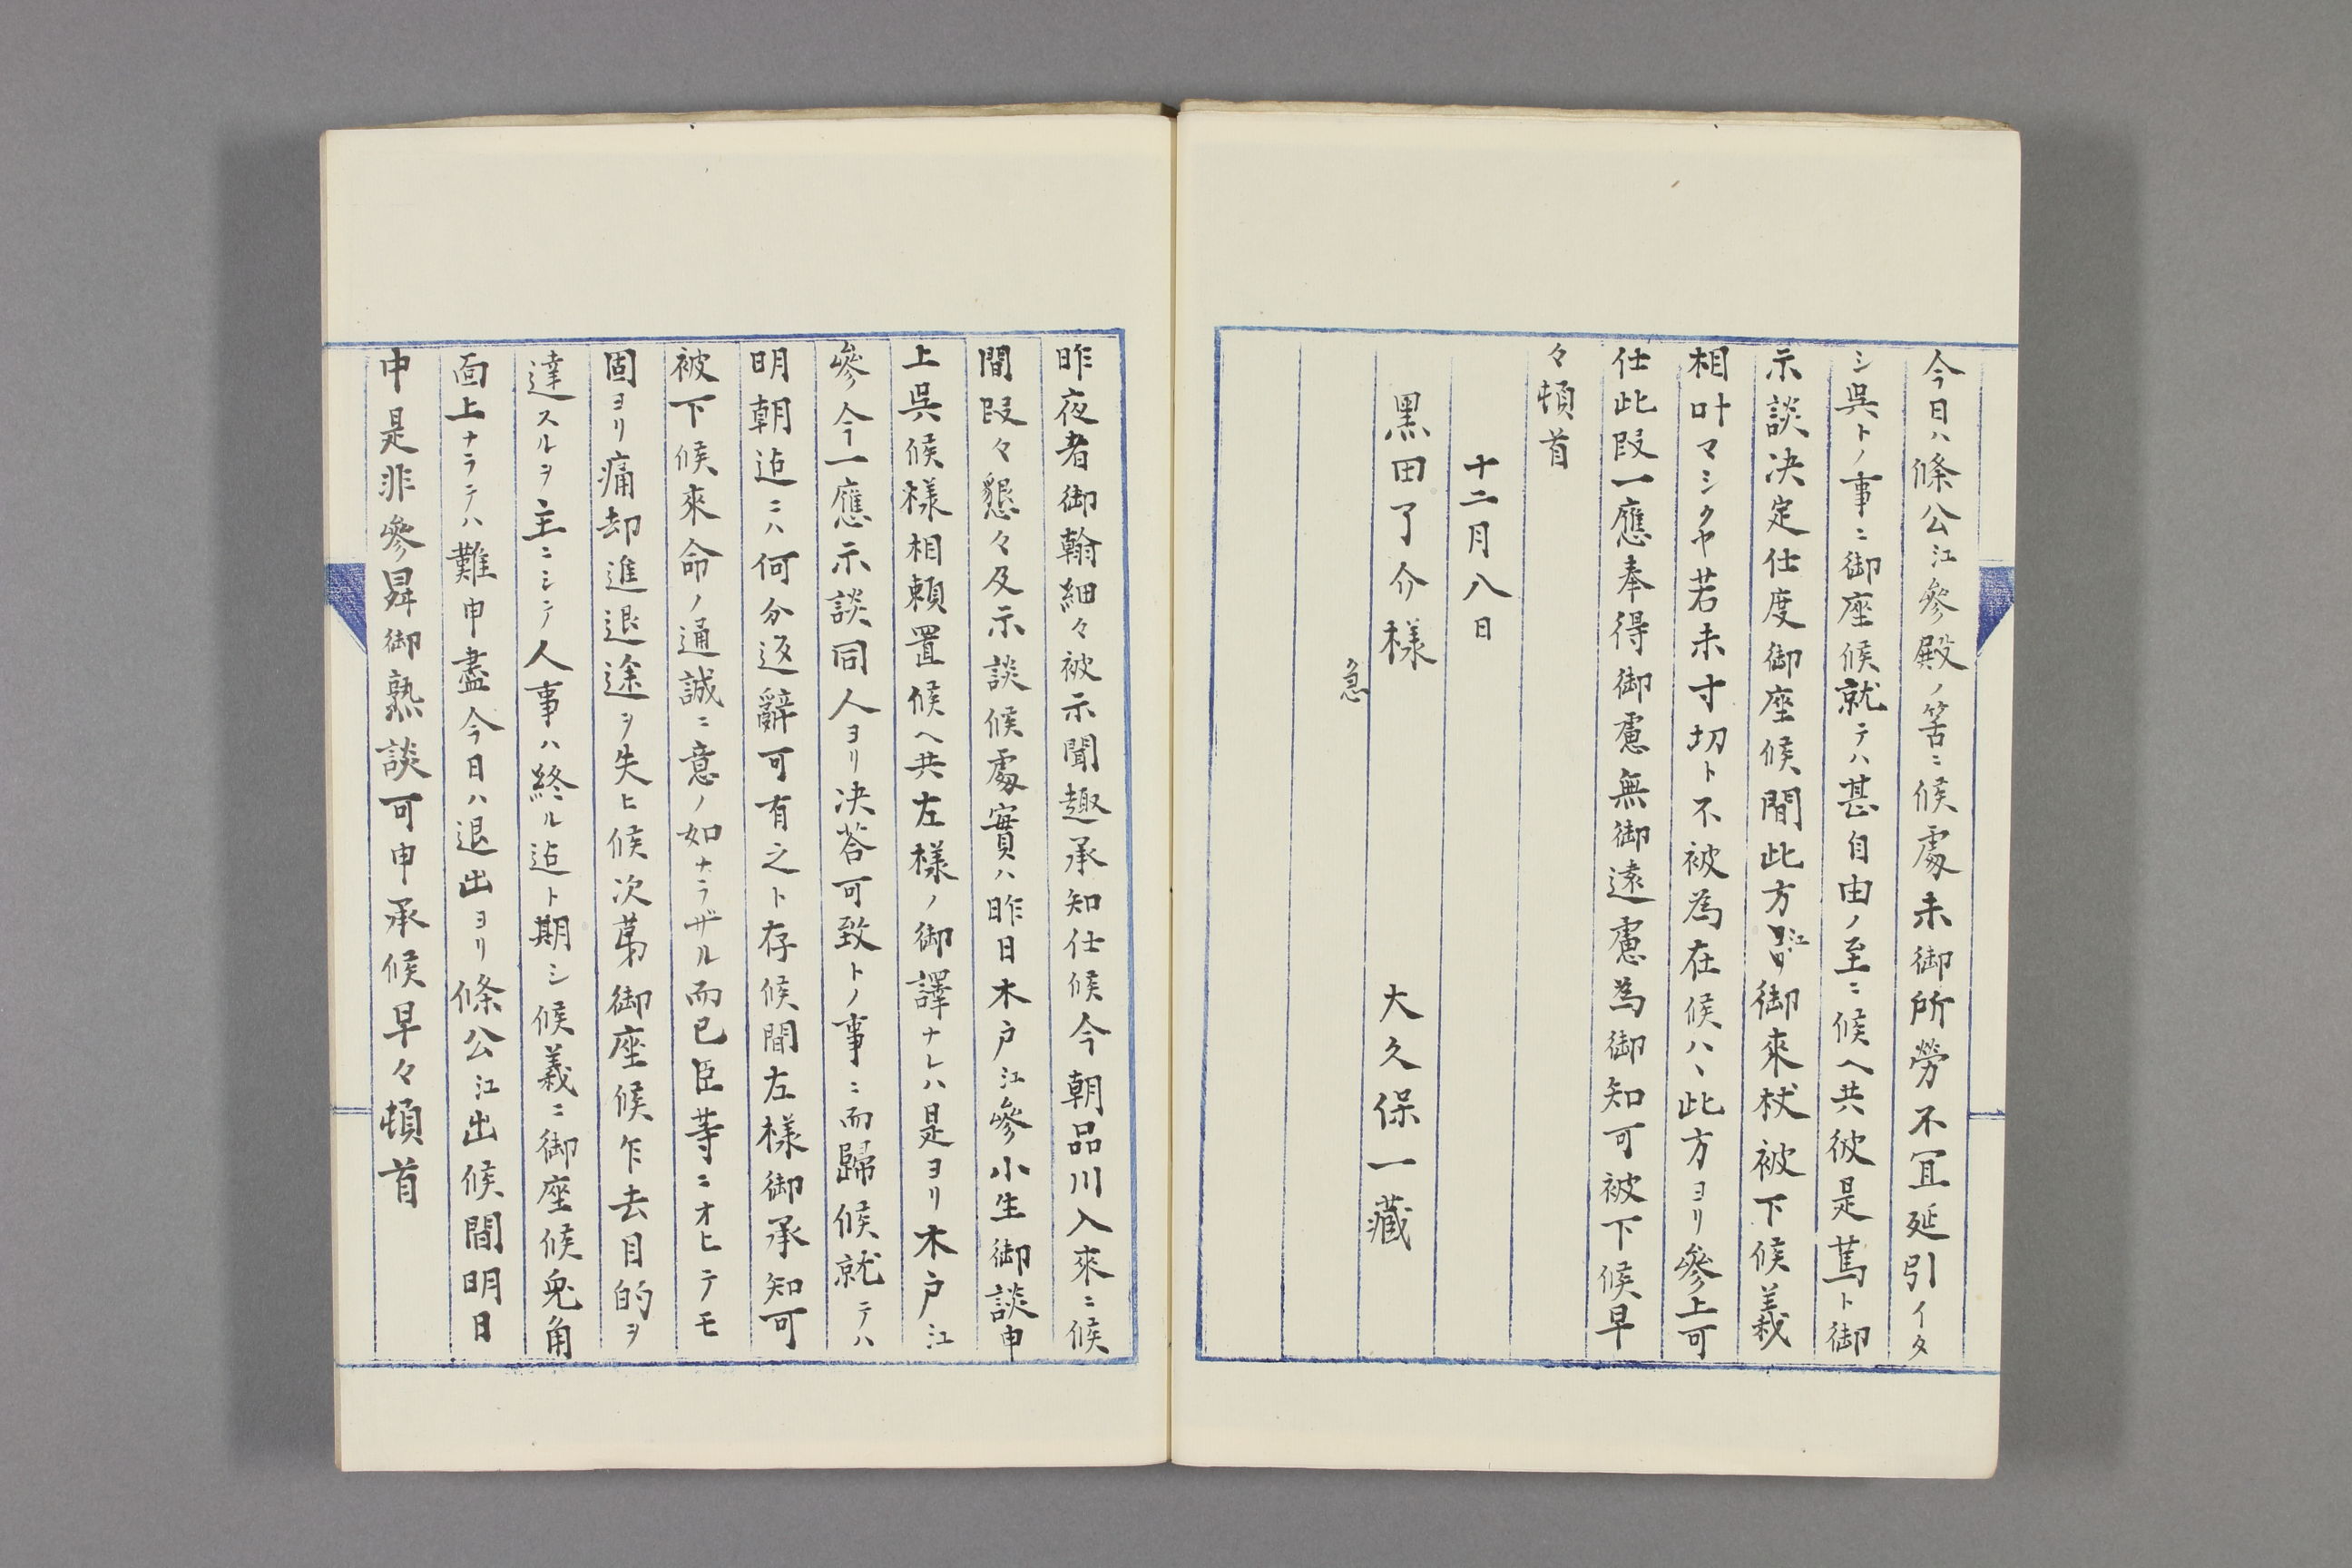 今日ハ條公江參殿ノ筈ニ候處未御所勞不宜延引イタ
シ呉トノ事ニ御座候就テハ甚自由ノ至ニ候ヘ共彼是篤ト御
示談決定仕度御座候間此方江御來杖被下候義
相叶マシクヤ若未寸切ト不被為在候ハヽ此方ヨリ參上可
仕此段一應奉得御慮無御遠慮為御知可被下候早
々頓首
十二月八日
黒田了介様
大久保一藏
急
昨夜者御翰細々被示聞趣承知仕候今朝品川入來ニ候
間段々懇々及示談候處實ハ昨日木戸江參小生御談申
上呉候様相頼置候ヘ共左様ノ御譯ナレハ是ヨリ木戸江
參今一應示談同人ヨリ決答可致トノ事ニ而歸候就テハ
明朝迠ニハ何分返辭可有之ト存候間左様御承知可
被下候來命ノ通誠ニ意ノ如ナラザル而已臣等ニオヒテモ
固ヨリ痛却進退途ヲ失ヒ候次苐御座候乍去目的ヲ
達スルヲ主ニシテ人事ハ終ル迠ト期シ候義ニ御座候兎角
面上ナラテハ難申盡今日ハ退出ヨリ條公江出候間明日
中是非參昇御熟談可申承候早々頓首